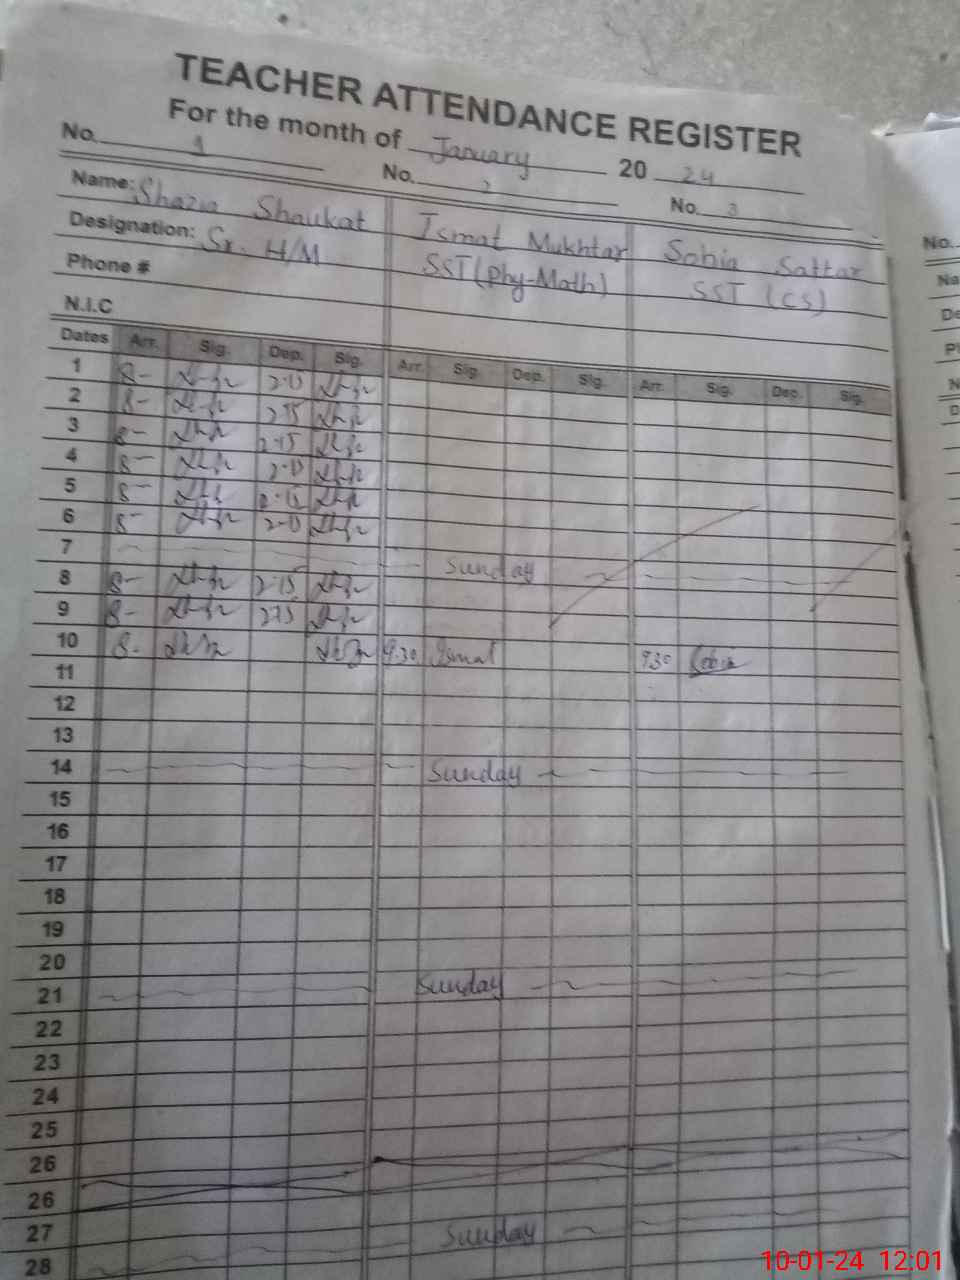 TEACHER ATTENDANCE REGISTER
For the month of January 20 24
No. 1 No. 2 No. 3
Name: Shazia Shaukat Ismat Mukhtar Sobia Sattar
Designation: Sr. H/M SST (Phy-Math) SST (CS)
Phone #
N.I.C
Dates Arr. Sig. Dep. Sig. Arr. Sig. Dep. Sig. Arr. Sig. Dep. Sig.
1 8- 2-15
2 8- 2-15
3 8- 2-15
4 8- 2-15
5 8- 2-15
6 8- 2-15
7 Sunday
8 8- 2-15
9 8- 215
10 8- 9.30 Ismat 930 Sobia
11
12
13
14 Sunday
15
16
17
18
19
20
21 Sunday
22
23
24
25
26
26
27 Sunday
28
No.
Na
De
N
D
10-01-24 12:01